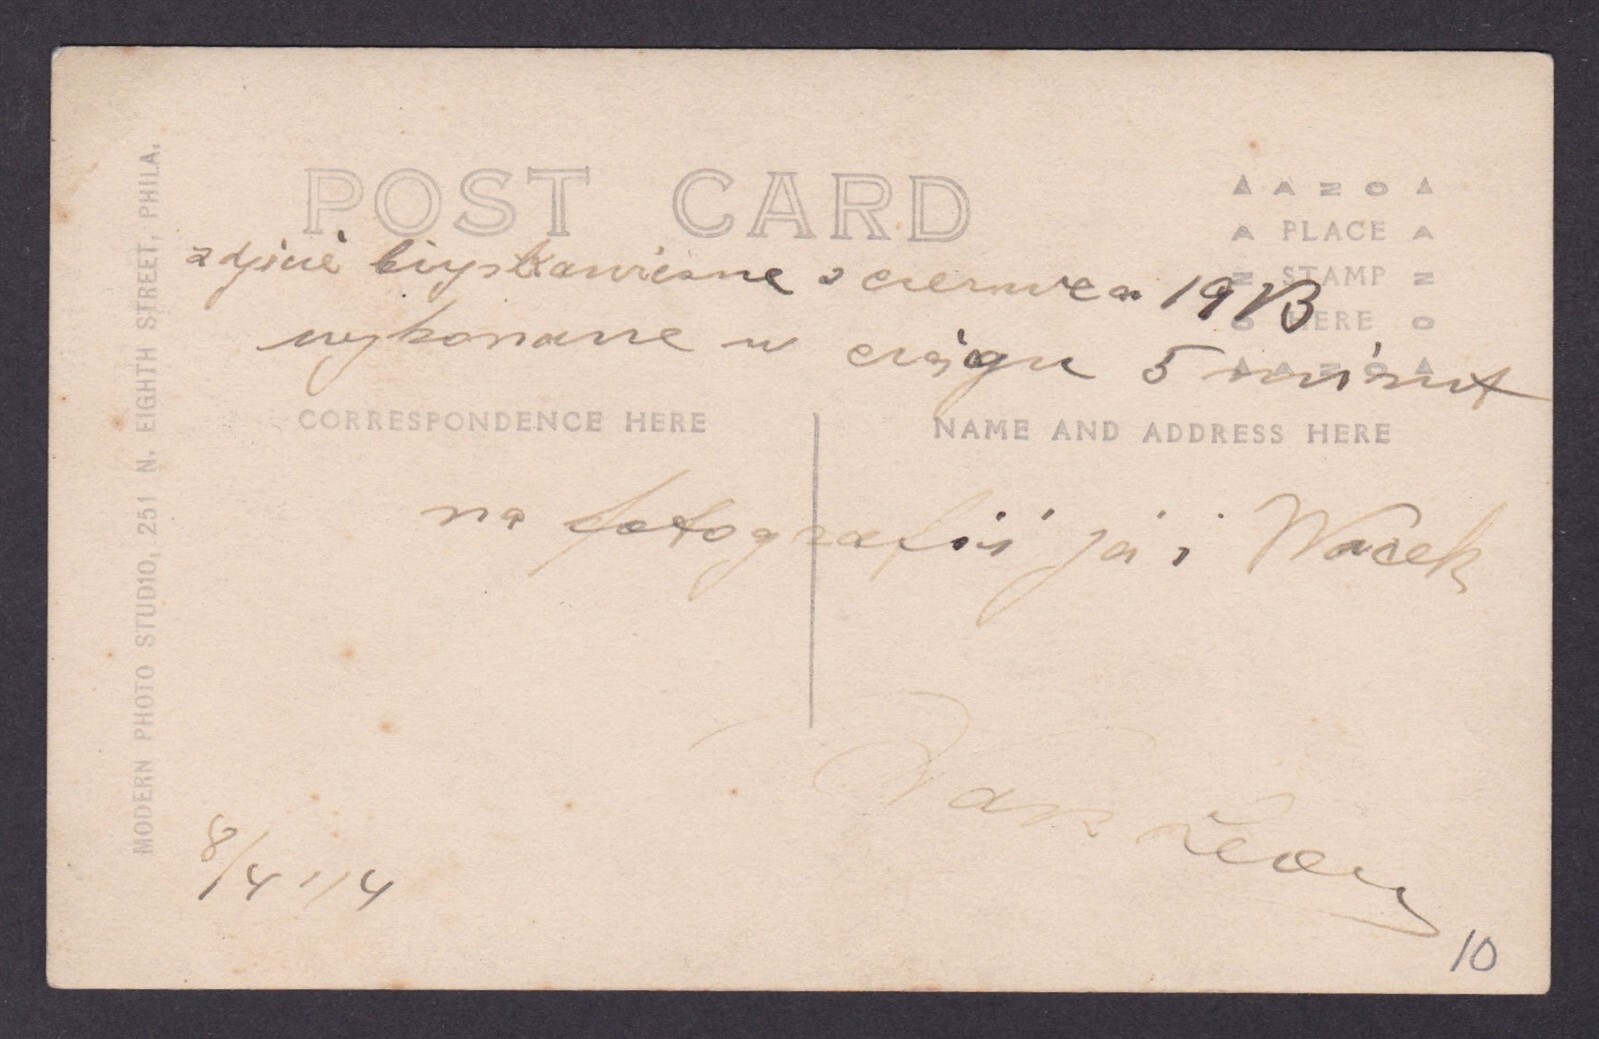 POST CARD
▲ A Z O ▲
A PLACE A
N STAMP N
O HERE O
▲ A Z O ▲
zdjęcie błyskawiczne z czerwca 1913
wykonane w ciągu 5 minut
CORRESPONDENCE HERE
NAME AND ADDRESS HERE
na fotografii ja i Wacek
Wasz Leon
8/4 1/4
10
MODERN PHOTO STUDIO, 251 N. EIGHTH STREET, PHILA.